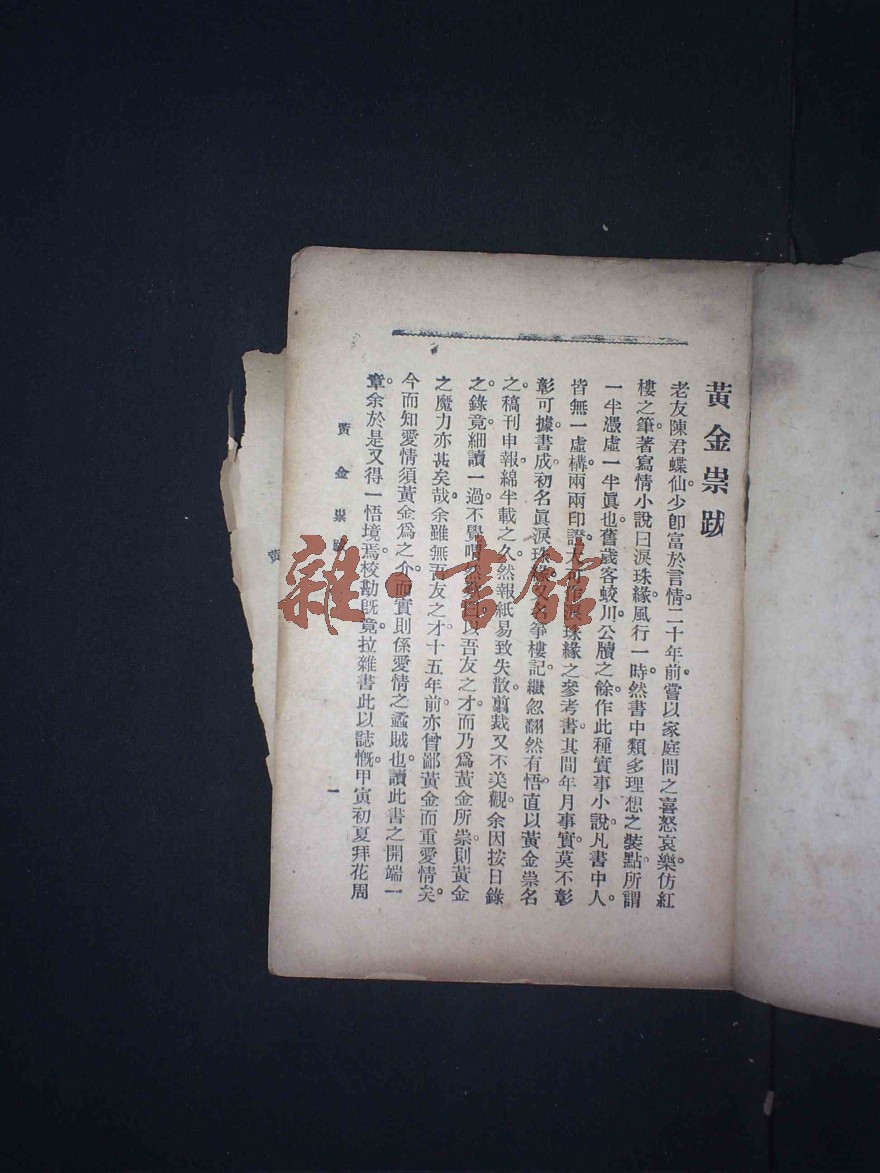 黃金祟跋
老友陳君蝶仙少卽富於言情。二十年前。嘗以家庭間之喜怒哀樂。仿紅
樓之筆。著寫情小說曰淚珠緣。風行一時。然書中類多理想之裝點。所謂
一半憑虛一半眞也。舊歲客蛟川。公牘之餘。作此種實事小說。凡書中人。
皆無一虛構。兩兩印證。大可作淚珠緣之參考書。其間年月事實。莫不彰
彰可據。書成。初名眞淚珠緣。又名箏樓記。繼忽翻然有悟。直以黃金祟名
之。稿刊申報。綿半載之久。然報紙易致失散。翦裁又不美觀。余因按日錄
之。錄竟細讀一過。不覺喟然 曰。以吾友之才。而乃爲黃金所祟。則黃金
之魔力亦甚矣哉。余雖無吾友之才。十五年前。亦曾鄙黃金而重愛情矣。
今而知愛情須黃金爲之介。而實則係愛情之蟊賊也。讀此書之開端一
章。余於是又得一悟境焉。校勘旣竟。拉雜書此。以誌慨。甲寅初夏拜花周
黃金祟 
一
黃
雜·書館